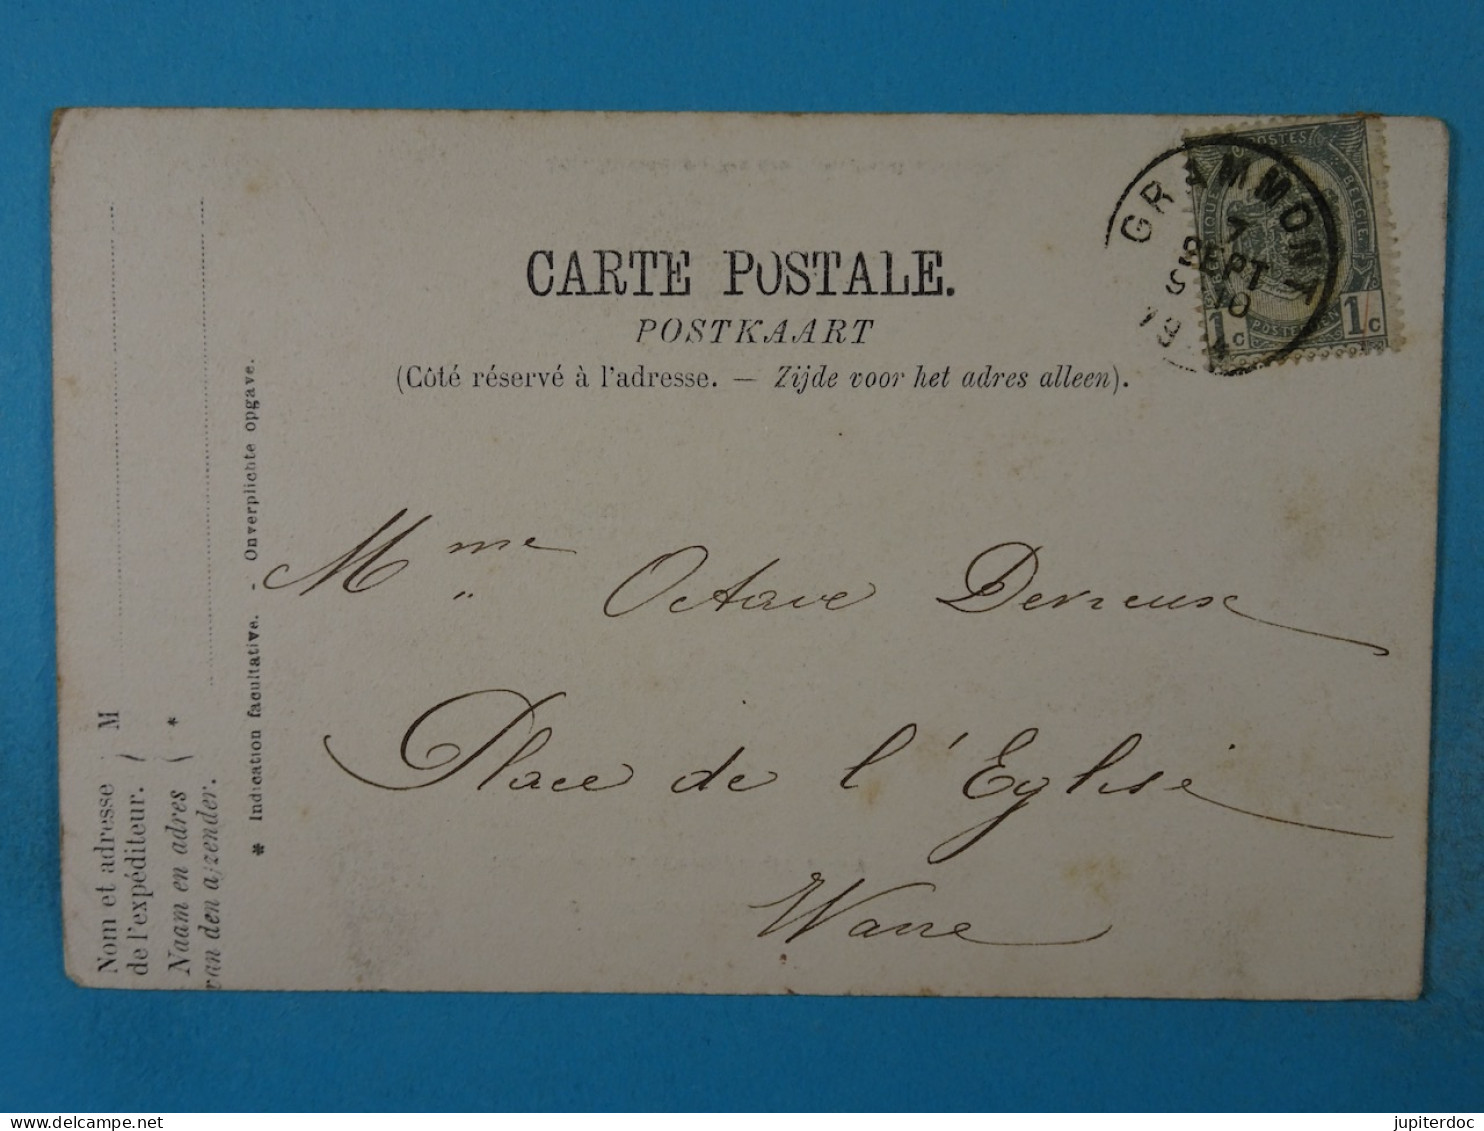 CARTE POSTALE.
POSTKAART
(Côté réservé à l'adresse. — Zijde voor het adres alleen).
GRAMMONT
7
SEPT
10
19
POSTES
BELGIE
1c 1c
Mme Octave Devreux
Place de l'Eglise
Nom et adresse
de l'expéditeur. } M
Naam en adres
van den afzender. { *
* Indication facultative. - Onverplichte opgave.
jupiterdoc